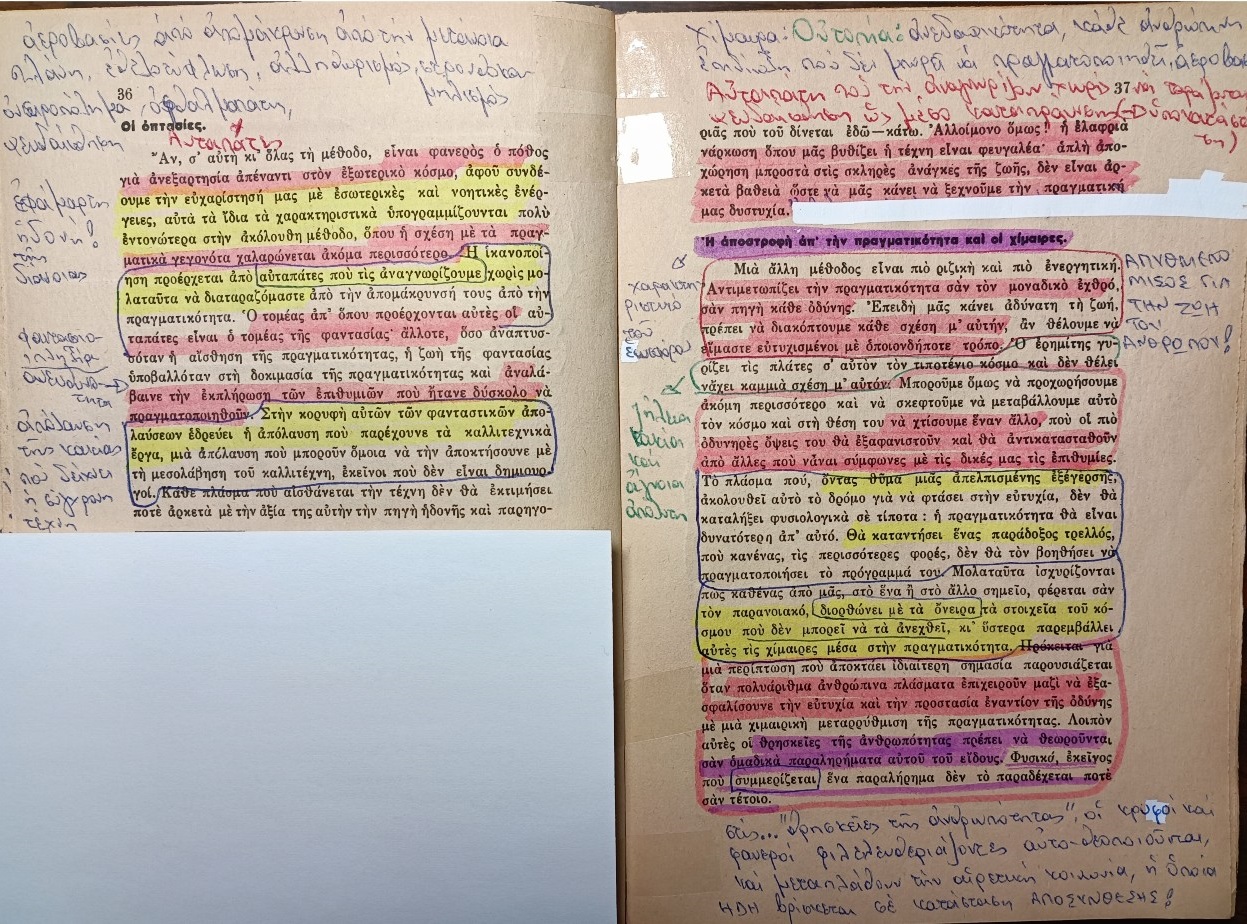 ἀεροβασίες ἀπό ἀπομάκρυνση ἀπό τήν μετάνοια
πλάνη, ἐθελοτύφλωση, ἀλληθωρισμός,
36
ὀνειροπόλημα, ὀφθαλμαπάτη,
ψευδαίσθηση
Αὐταπάτες
Οἱ ὀπτασίες.
Ἄν, σ' αὐτὴ κι' ὅλας τὴ μέθοδο, εἶναι φανερὸς ὁ πόθος
γιὰ ἀνεξαρτησία ἀπέναντι στὸν ἐξωτερικὸ κόσμο, ἀφοῦ συνδέ-
ουμε τὴν εὐχαρίστησή μας μὲ ἐσωτερικὲς καὶ νοητικὲς ἐνέρ-
γειες, αὐτὰ τὰ ἴδια τὰ χαρακτηριστικὰ ὑπογραμμίζουνται πολὺ
ἐντονώτερα στὴν ἀκόλουθη μέθοδο, ὅπου ἡ σχέση μὲ τὰ πραγ-
ματικὰ γεγονότα χαλαρώνεται ἀκόμα περισσότερο. Ἡ ἱκανοποί-
ηση προέρχεται ἀπὸ αὐταπάτες ποὺ τὶς ἀναγνωρίζουμε χωρὶς μο-
λαταῦτα νὰ διαταραζόμαστε ἀπὸ τὴν ἀπομάκρυνσή τους ἀπὸ τὴν
πραγματικότητα. Ὁ τομέας ἀπ' ὅπου προέρχονται αὐτὲς οἱ αὐ-
ταπάτες εἶναι ὁ τομέας τῆς φαντασίας· ἄλλοτε, ὅσο ἀναπτυσ-
σόταν ἡ αἴσθηση τῆς πραγματικότητας, ἡ ζωὴ τῆς φαντασίας
ὑποβαλλόταν στὴ δοκιμασία τῆς πραγματικότητας καὶ ἀναλά-
βαινε τὴν ἐκπλήρωση τῶν ἐπιθυμιῶν ποὺ ἤτανε δύσκολο νὰ
πραγματοποιηθοῦν. Στὴν κορυφὴ αὐτῶν τῶν φανταστικῶν ἀπο-
λαύσεων ἑδρεύει ἡ ἀπόλαυση ποὺ παρέχουνε τὰ καλλιτεχνικὰ
ἔργα, μιὰ ἀπόλαυση ποὺ μποροῦν ὅμοια νὰ τὴν ἀποκτήσουνε μὲ
τὴ μεσολάβηση τοῦ καλλιτέχνη, ἐκεῖνοι ποὺ δὲν εἶναι δημιουρ-
γοί. Κάθε πλάσμα ποὺ αἰσθάνεται τὴν τέχνη δὲν θὰ ἐκτιμήσει
ποτὲ ἀρκετὰ μὲ τὴν ἀξία της αὐτὴν τὴν πηγὴ ἡδονῆς καὶ παρηγο-
ἐφάμαρτη
ἡδονή!
τῆς
διανοίας
ἀπόλαυση
τῆς κακίας
πού δείχνει
ἡ σύγχρονη
τέχνη
Χίμαιρα: Οὐτοπία: ἀνεδαφικότητα, κάθε ἀνθρώπινη
ἐπιδίωξη πού δέν μπορεῖ νά πραγματοποιηθεῖ,
Αὐταπάτη πού τήν ἀναγνωρίζουν χωρίς νά
37
ψευδαίσθηση ὡς μέσο καταπράυνσης
ριᾶς ποὺ τοῦ δίνεται ἐδῶ—κάτω. Ἀλλοίμονο ὅμως!! ἡ ἐλαφριὰ
νάρκωση ὅπου μᾶς βυθίζει ἡ τέχνη εἶναι φευγαλέα· ἁπλὴ ἀπο-
χώρηση μπροστὰ στὶς σκληρὲς ἀνάγκες τῆς ζωῆς, δὲν εἶναι ἀρ-
κετὰ βαθειὰ ὥστε νὰ μᾶς κάνει νὰ ξεχνοῦμε τὴν πραγματικὴ
μας δυστυχία.
Ἡ ἀποστροφὴ ἀπ' τὴν πραγματικότητα καὶ οἱ χίμαιρες.
Μιὰ ἄλλη μέθοδος εἶναι πιὸ ριζικὴ καὶ πιὸ ἐνεργητική.
Ἀντιμετωπίζει τὴν πραγματικότητα σὰν τὸν μοναδικὸ ἐχθρό,
σὰν πηγὴ κάθε ὀδύνης. Ἐπειδὴ μᾶς κάνει ἀδύνατη τὴ ζωή,
πρέπει νὰ διακόπτουμε κάθε σχέση μ' αὐτήν, ἂν θέλουμε νὰ
εἴμαστε εὐτυχισμένοι μὲ ὁποιονδήποτε τρόπο. Ὁ ἐρημίτης γυ-
ρίζει τὶς πλάτες σ' αὐτὸν τὸν τιποτένιο κόσμο καὶ δὲν θέλει
νἄχει καμμιὰ σχέση μ' αὐτόν. Μποροῦμε ὅμως νὰ προχωρήσουμε
ἀκόμη περισσότερο καὶ νὰ σκεφτοῦμε νὰ μεταβάλλουμε αὐτὸ
τὸν κόσμο καὶ στὴ θέση του νὰ χτίσουμε ἕναν ἄλλο, ποὺ οἱ πιὸ
ὀδυνηρὲς ὄψεις του θὰ ἐξαφανιστοῦν καὶ θὰ ἀντικατασταθοῦν
ἀπὸ ἄλλες ποὺ νἆναι σύμφωνες μὲ τὶς δικές μας τὶς ἐπιθυμίες.
Τὸ πλάσμα πού, ὄντας θῦμα μιᾶς ἀπελπισμένης ἐξέγερσης,
ἀκολουθεῖ αὐτὸ τὸ δρόμο γιὰ νὰ φτάσει στὴν εὐτυχία, δὲν θὰ
καταλήξει φυσιολογικὰ σὲ τίποτα : ἡ πραγματικότητα θὰ εἶναι
δυνατότερη ἀπ' αὐτό. Θὰ καταντήσει ἕνας παράδοξος τρελλός,
ποὺ κανένας, τὶς περισσότερες φορές, δὲν θὰ τὸν βοηθήσει νὰ
πραγματοποιήσει τὸ πρόγραμμά του. Μολαταῦτα ἰσχυρίζονται
πὼς καθένας ἀπὸ μᾶς, στὸ ἕνα ἢ στὸ ἄλλο σημεῖο, φέρεται σὰν
τὸν παρανοιακό, διορθώνει μὲ τὰ ὄνειρα τὰ στοιχεῖα τοῦ κό-
σμου ποὺ δὲν μπορεῖ νὰ τὰ ἀνεχθεῖ, κι' ὕστερα παρεμβάλλει
αὐτὲς τὶς χίμαιρες μέσα στὴν πραγματικότητα. Πρόκειται γιὰ
μιὰ περίπτωση ποὺ ἀποκτάει ἰδιαίτερη σημασία παρουσιάζεται
ὅταν πολυάριθμα ἀνθρώπινα πλάσματα ἐπιχειροῦν μαζὶ νὰ ἐξα-
σφαλίσουνε τὴν εὐτυχία καὶ τὴν προστασία ἐναντίον τῆς ὀδύνης
μὲ μιὰ χιμαιρικὴ μεταρρύθμιση τῆς πραγματικότητας. Λοιπὸν
αὐτὲς οἱ θρησκεῖες τῆς ἀνθρωπότητας πρέπει νὰ θεωροῦνται
σὰν ὁμαδικὰ παραληρήματα αὐτοῦ τοῦ εἴδους. Φυσικά, ἐκεῖνος
ποὺ συμμερίζεται ἕνα παραλήρημα δὲν τὸ παραδέχεται ποτὲ
σὰν τέτοιο.
ΑΠΥΘΜΕΝΟ
ΜΙΣΟΣ ΓΙΑ
ΤΗΝ ΖΩΗ
ΤΟΝ
ΑΝΘΡΩΠΟΝ!
χαρακτη
ριστικό
τοῦ
ἑωσφόρου
κακία
καί
ἄγνοια
ἀπόλυτη
στίς... "θρησκεῖες τῆς ἀνθρωπότητας", οἱ κρυφοί καί
φανεροί φιλελευθεριάζοντες αὐτο-θεοποιοῦνται,
καί μεταπλάθουν τήν αἱρετική κοινωνία, ἡ ὁποία
ΗΔΗ βρίσκεται σέ κατάσταση ΑΠΟΣΥΝΘΕΣΗΣ!